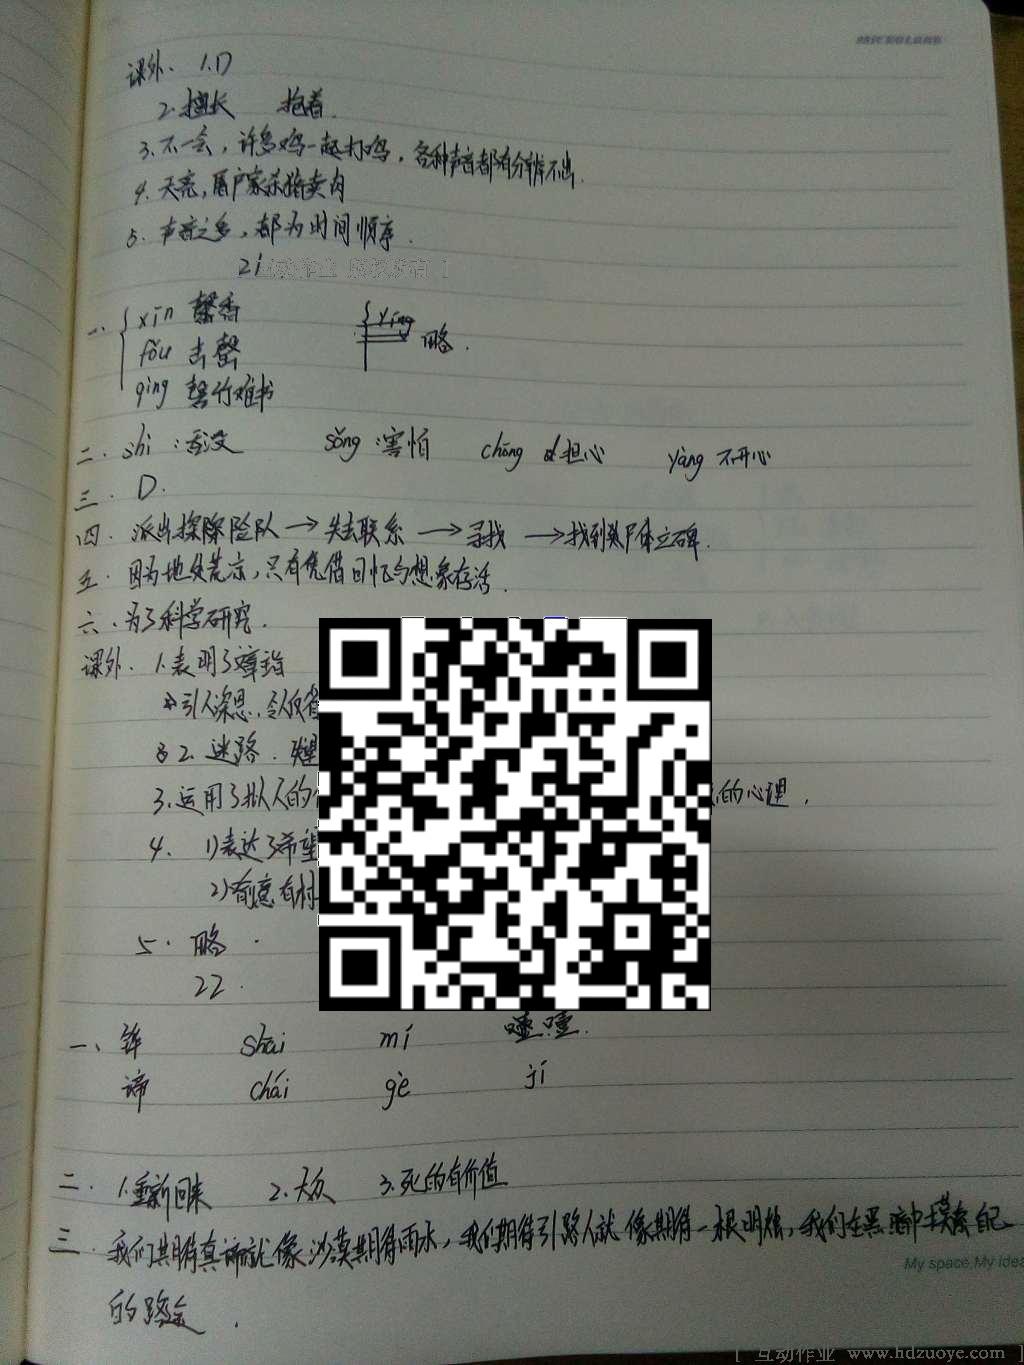 课外. 1.D
2.擅长 抱着.
3.不一会,许多鸡一起打鸣,各种声音都有分辨不出.
4.天亮,屠户家杀猪卖肉
5.声音之多,都为时间顺序.
21
一. xīn 馨香 yíng 略.
fǒu 击罄
qìng 罄竹难书
二. shì:吞没 sǒng:害怕 chōng 担心 yàng 不开心
三. D.
四. 派出探险队→失去联系→寻找→找到尸体立碑.
五. 因为地处荒凉,只有凭借回忆与想象存活.
六. 为了科学研究.
课外. 1.表明了
引人深思,令人反省
2.迷路.
3.运用了拟人的 的心理.
4. 1)表达了希望
2)有
5.略.
22.
一、 锌 shāi mí 噎.
谛 chái gè jí
二. 1.重新回来 2.大众 3.死的有价值
三. 我们期待真谛就像沙漠期待雨水,我们期待引路人就像期待一根明烛,我们在黑暗中摸索自己
的路途.
My space,My idea
[ 互动作业 www.hdzuoye.com ]